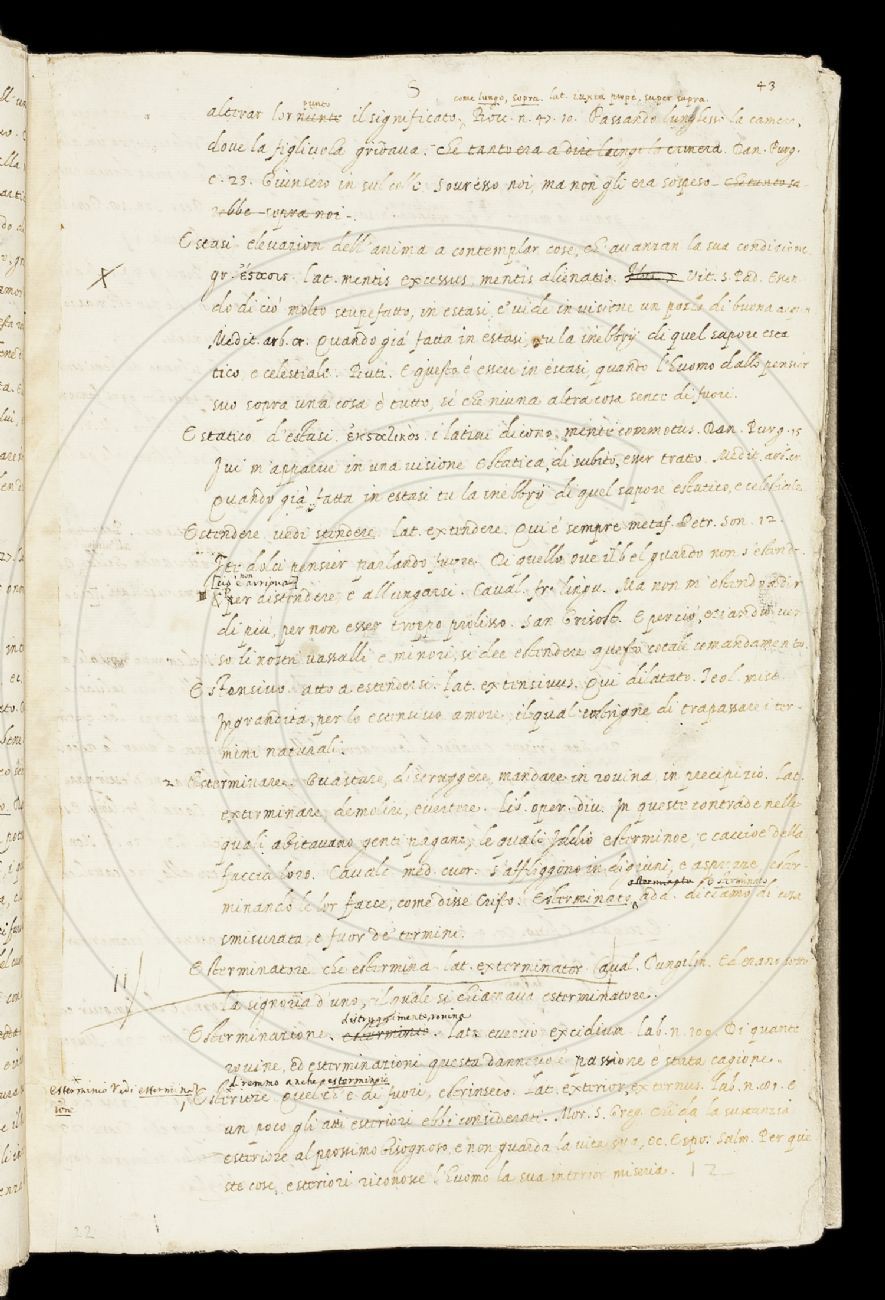 43
S
come lungo, sopra. lat. iuxta prope, super supra.
punto
alterar lor niente il significato. Nov. n. 47. 10. Passando lunghesso la camera,
dove la figlivola gridava. che tanto era a dire lungo la camera. Dan. Purg.
c. 23. Giunsero in sul colle Sovresso noi, ma non gli era sospeso. che tanto sa-
rebbe sopra noi.
Estasi elevazion dell'anima a contemplar cose, ch'avanzan la sua condizione
X
gr. ἔκστασις. lat. mentis excessus, mentis alienatio. Vit. S. Pad. Essen-
do di ciò molto stupefatto, in estasi, e vide in visione un pozzo di buona acqua
Medit. arb. cr. Quando già fatta in estasi, tu la inebbrij di quel sapore esta
tico, e celestiale. But. E questo è essere in estasi, quando l'Huomo dallo pensier
suo sopra una cosa è tutto, sì che niuna altra cosa sente di fuori.
Estatico d'estasi. ἐκστατικός. i latini dicono, mente commotus. Dan. Purg. 15
Ivi m'apparve in una visione Estatica di subito, esser tratto. Medit. arb. cr.
Quando già fatta in estasi tu la inebbrij di quel sapore estatico, e celestiale
Estendere vedi stendere. lat. extendere. Qui è sempre metaf. Petr. Son. 12
I tre dolci pensier parlando fuore. Di quello, ove il bel guardo non s'estende.
cioè non arriva
X Per distendere, e allungarsi. Caval. fr. lingu. Ma non m'estendo a dir
di più, per non esser troppo prolisso. San Grisost. E perciò, eziandio ver-
so li nostri vassalli e minori, si dee estendere questo cotale comandamento.
Estensivo. atto a estendersi. lat. extensivus. Qui dilatato. Teol. mist.
Ingrandita, per lo estensivo amore, il qual costrigne di trapassare i ter-
mini naturali.
2 Esterminare. Guastare, distruggere, mandare in rovina, in precipizio. lat.
exterminare, demolire, evertere. Lib. oper. div. In queste contrade nelle
quali abitavano genti pagane, le quali Iddio esterminoe, e caccioe della
faccia loro. Cavalc. med. cuor. S'affliggono in digiuni, e asprezze, ester-
esterminato
minando le lor facce, come disse Cristo. Esterminato, add. diciamo di cosa
smisurata, e fuor de' termini.
11
Esterminatore che estermina lat. exterminator. Caval. Pungil. Ed erano sotto
la signoria d'uno, il quale si chiamava esterminatore.
distruggimento, rovina
Esterminazione. lat. excidium. lab. n. 109. Di quante
rovine, ed esterminazioni questa dannevole passione è stata cagione.
diremmo anche esterminio
Esterminio Vedi estermina
zione
Esteriore Quel ch'è di fuori, estrinseco. Lat. exterior, externus. lab. n. e
un poco gli atti esteriori ebbi considerati. Mor. S. Greg. Chi dà la sustanzia
esteriore al prossimo bisognoso, e non guarda la vita sua, ec. Espo. Salm. Per que
ste cose esteriori riconosce l'Huomo la sua interior miseria. 12
22